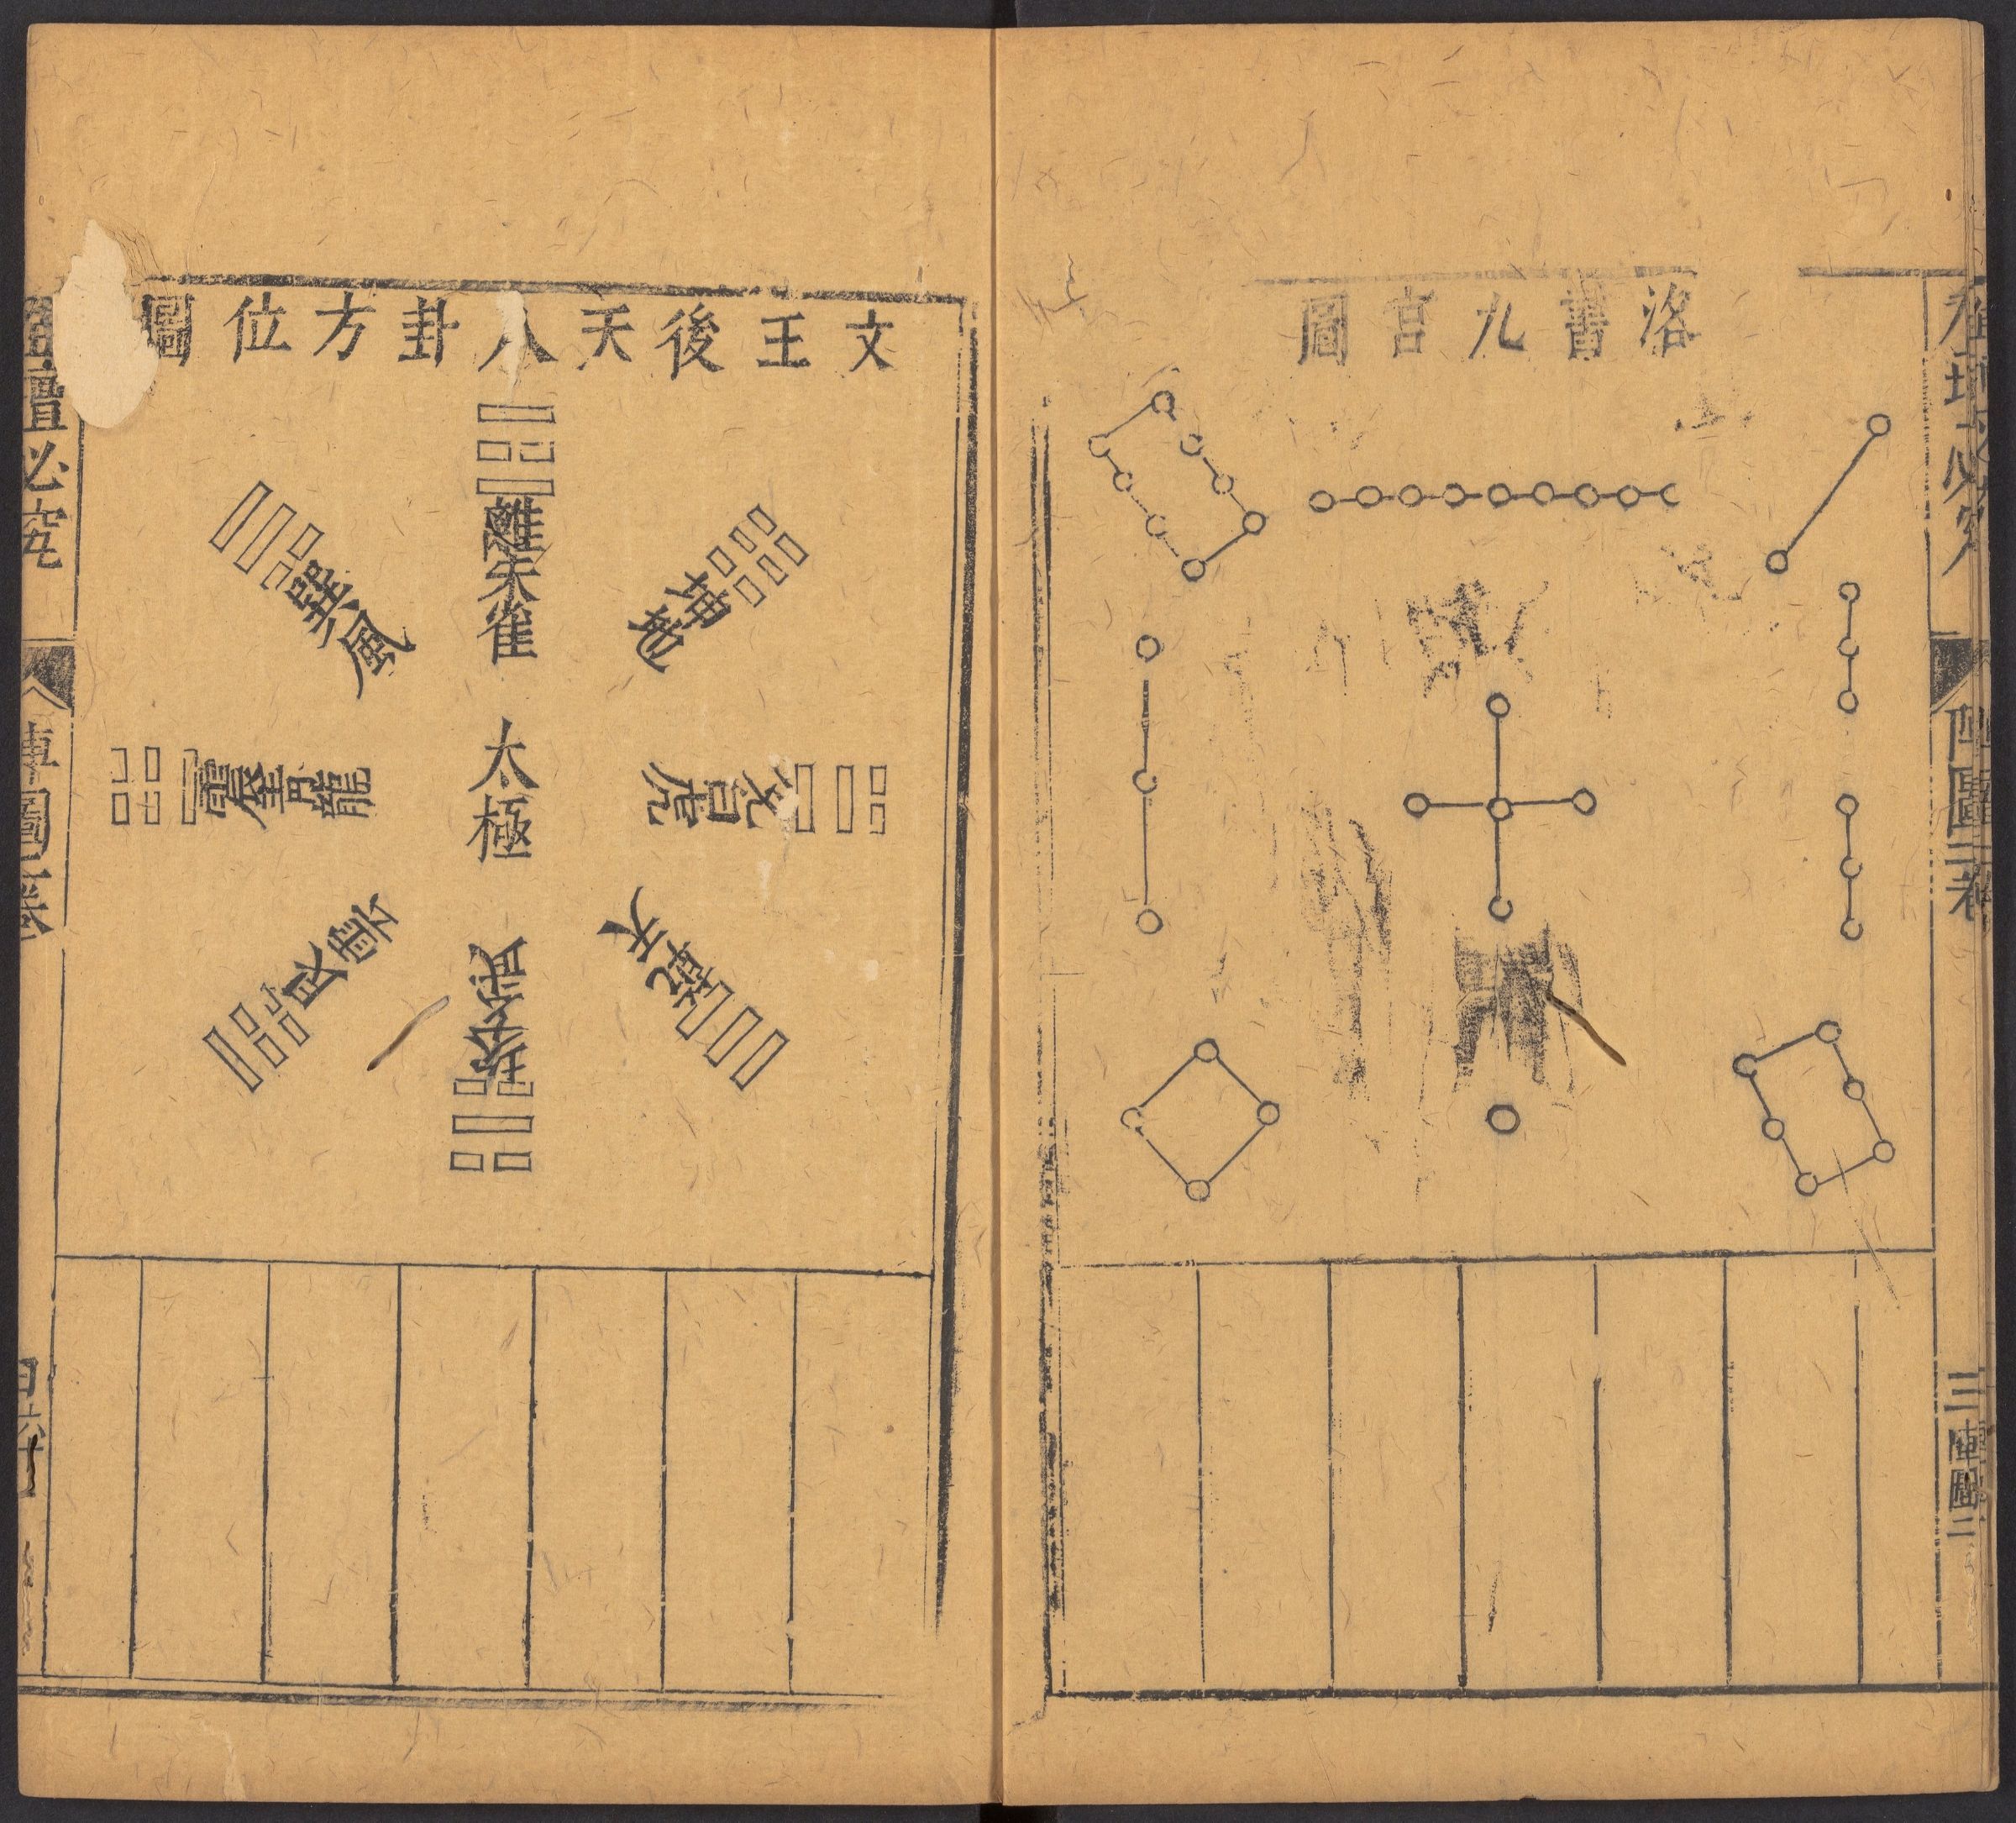 洛書九宮圖
陣圖二
文王後天八卦方位圖
離朱雀
坤地
兌白虎
乾天
坎玄武
艮雲
震青龍
巽風
太極
壇必究
陣圖一卷